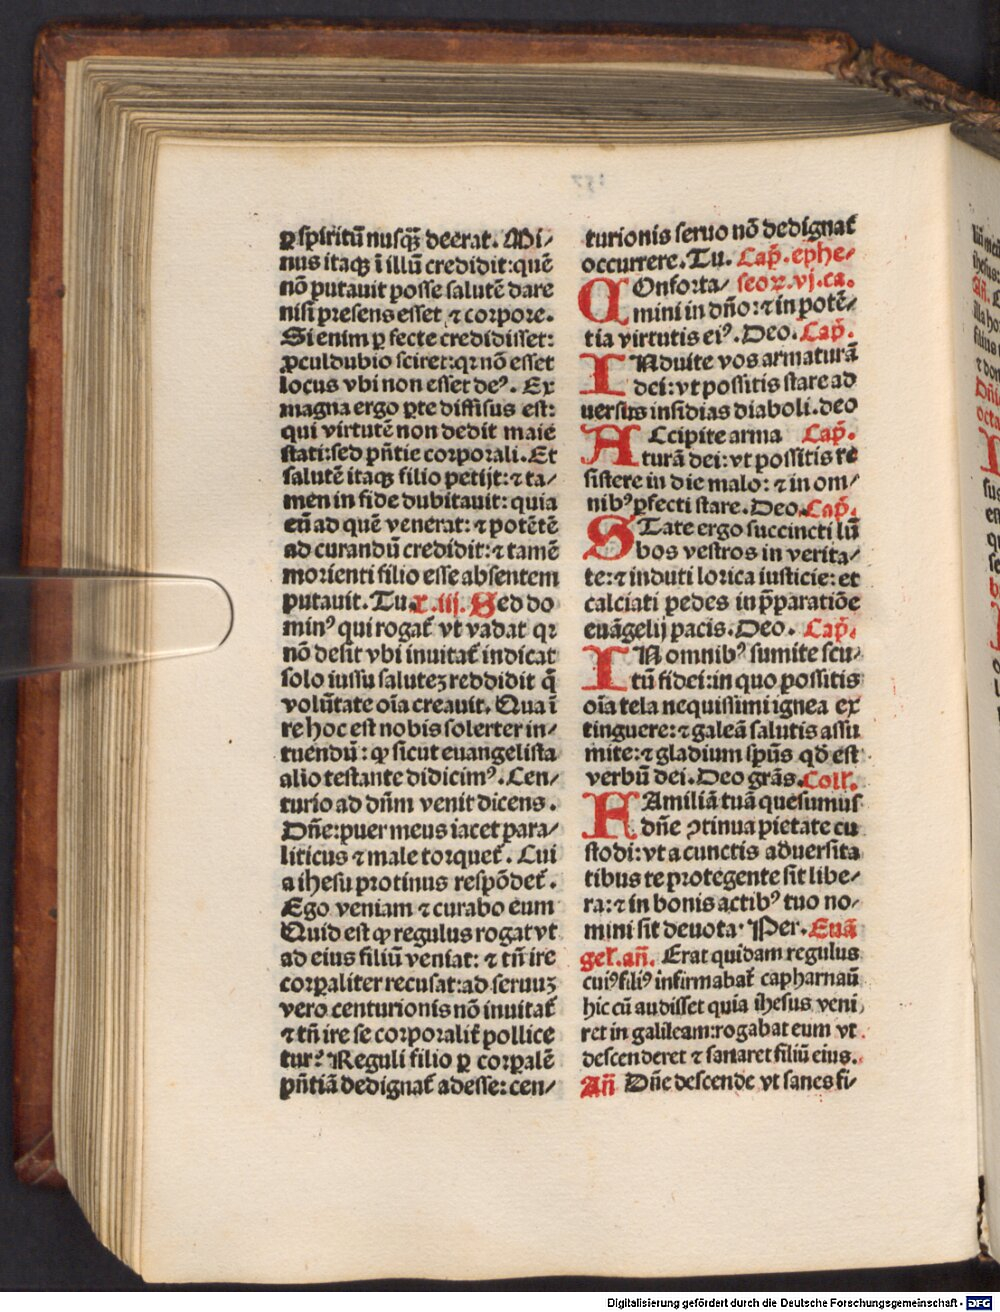 ꝑ spiritū nusqꝫ̄ deerat. Mi⸗
nus itaqꝫ ī illū credidit: quē
nō putauit posse salutē dare
nisi presens esset ⁊ corpore.
Si enim ꝑfecte credidisset:
ꝓculdubio sciret: qꝛ nō esset
locus vbi non esset deꝰ. Ex
magna ergo ꝑte diffisus est:
qui virtutē non dedit maie
stati: sed pn̄tie corporali. Et
salutē itaqꝫ filio petijt: ⁊ ta⸗
men in fide dubitauit: quia
eū ad quē venerat: ⁊ potētē
ad curandū credidit: ⁊ tamē
morienti filio esse absentem
putauit. Tu. r. iij. Sed do
minꝰ qui rogat̄ vt vadat qꝛ
nō desit vbi inuitat̄ indicat
solo iussu saluteꝫ reddidit q̄
volūtate oīa creauit. Qua ī
re hoc est nobis solerter in⸗
tuendū: ꝙ sicut euangelista
alio testante didicimꝰ. Cen⸗
turio ad dn̄m venit dicens.
Dn̄e: puer meus iacet para⸗
liticus ⁊ male torquet̄. Cui
a ihesu protinus respōdet̄.
Ego veniam ⁊ curabo eum
Quid est ꝙ regulus rogat vt
ad eius filiū veniat: ⁊ tn̄ ire
corꝑaliter recusat: ad seruuꝫ
vero centurionis nō inuitat̄
⁊ tn̄ ire se corporalit̄ pollice
tur? Reguli filio ꝑ corpalē
pn̄tiā dedignat̄ adesse: cen⸗
turionis seruo nō dedignat̄
occurrere. Tu. Cap̄. ephe⸗
COnforta⸗ seoꝝ. vj. ca.
mini in dn̄o: ⁊ in potē⸗
tia virtutis eiꝰ. Deo. Cap̄.
INduite vos armaturā
dei: vt possitis stare ad
uersus insidias diaboli. deo
ACcipite arma Cap̄.
turā dei: vt possitis re
sistere in die malo: ⁊ in om⸗
nibꝰ ꝑfecti stare. Deo. Cap̄.
STate ergo succincti lū
bos vestros in verita⸗
te: ⁊ induti lorica iusticie: et
calciati pedes in p̄paratiōe
euāgelij pacis. Deo. Cap̄.
IN omnibꝰ sumite scu⸗
tū fidei: in quo possitis
oīa tela nequissimi ignea ex
tinguere: ⁊ galeā salutis assu
mite: ⁊ gladium spūs qd̄ est
verbū dei. Deo grās. Coll̄.
FAmiliā tuā quesumus
dn̄e ꝯtinua pietate cu
stodi: vt a cunctis aduersita
tibus te protegente sit libe⸗
ra: ⁊ in bonis actibꝰ tuo no⸗
mini sit deuota. Per. Euā
gel̄. an̄. Erat quidam regulus
cuiꝰ filiꝰ infirmabat̄ capharnaū
hic cū audisset quia ihesus veni
ret in galileam: rogabat eum vt
descenderet ⁊ sanaret filiū eius.
An̄ Dn̄e descende vt sanes fi⸗
Digitalisierung gefördert durch die Deutsche Forschungsgemeinschaft - DFG